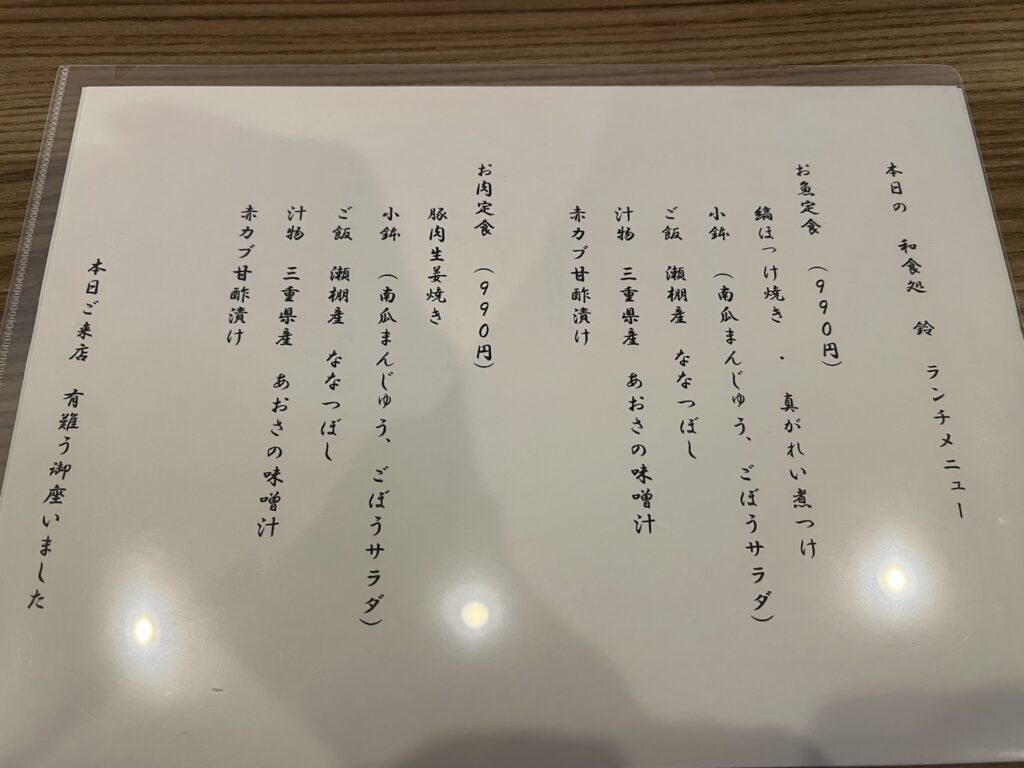 本日の 和食処 鈴 ランチメニュー
お魚定食 (990円)
縞ほっけ焼き ・ 真がれい煮つけ
小鉢 (南瓜まんじゅう、ごぼうサラダ)
ご飯 瀬棚産 ななつぼし
汁物 三重県産 あおさの味噌汁
赤カブ甘酢漬け
お肉定食 (990円)
豚肉生姜焼き
小鉢 (南瓜まんじゅう、ごぼうサラダ)
ご飯 瀬棚産 ななつぼし
汁物 三重県産 あおさの味噌汁
赤カブ甘酢漬け
本日ご来店 有難う御座いました